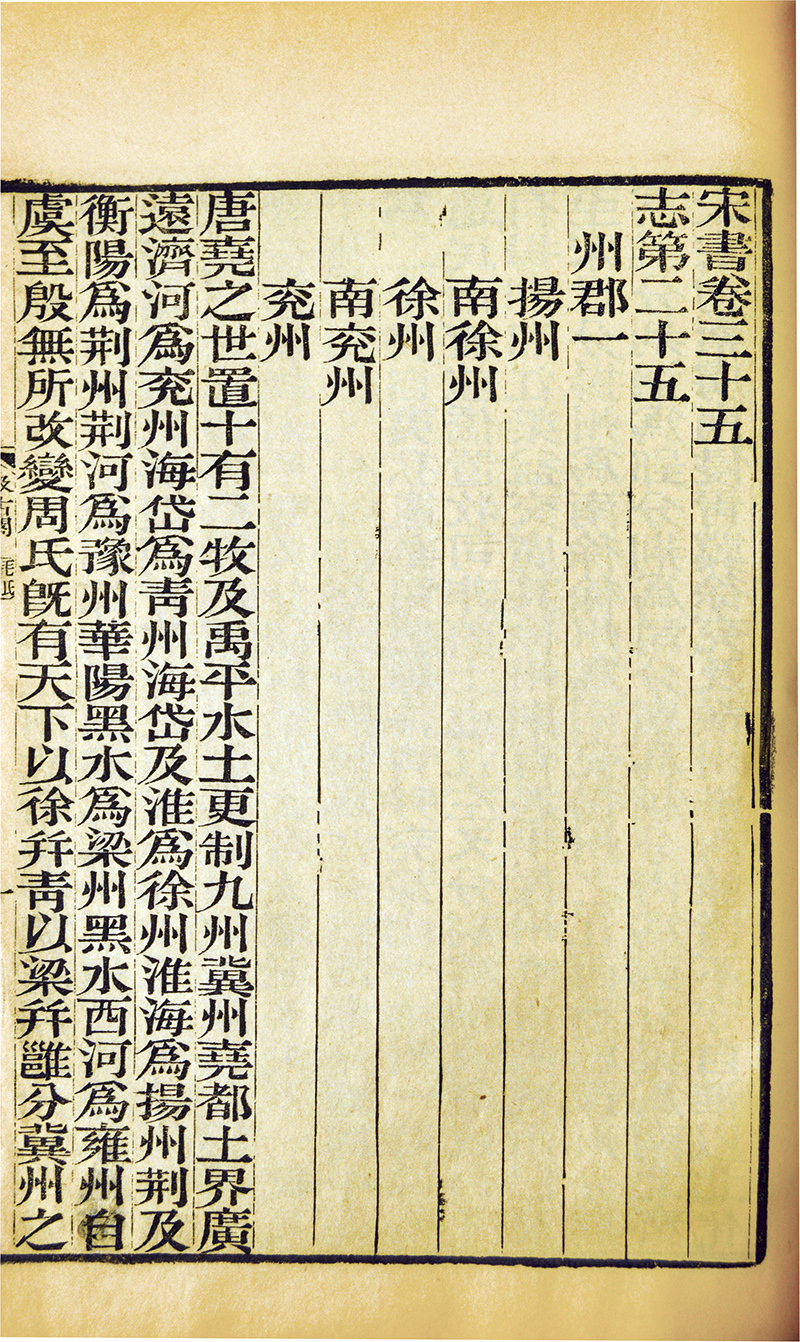 宋書卷三十五
志第二十五
州郡一
揚州
南徐州
徐州
南兖州
兖州
唐堯之世置十有二牧及禹平水土更制九州冀州堯都土界廣
遠濟河為兖州海岱為靑州海岱及淮為徐州淮海為揚州荆及
衡陽為荆州荆河為豫州華陽黑水為梁州黑水西河為雍州自
虞至殷無所改變周氏旣有天下以徐幷靑以梁幷雝分冀州之
汲古閣
毛氏
一